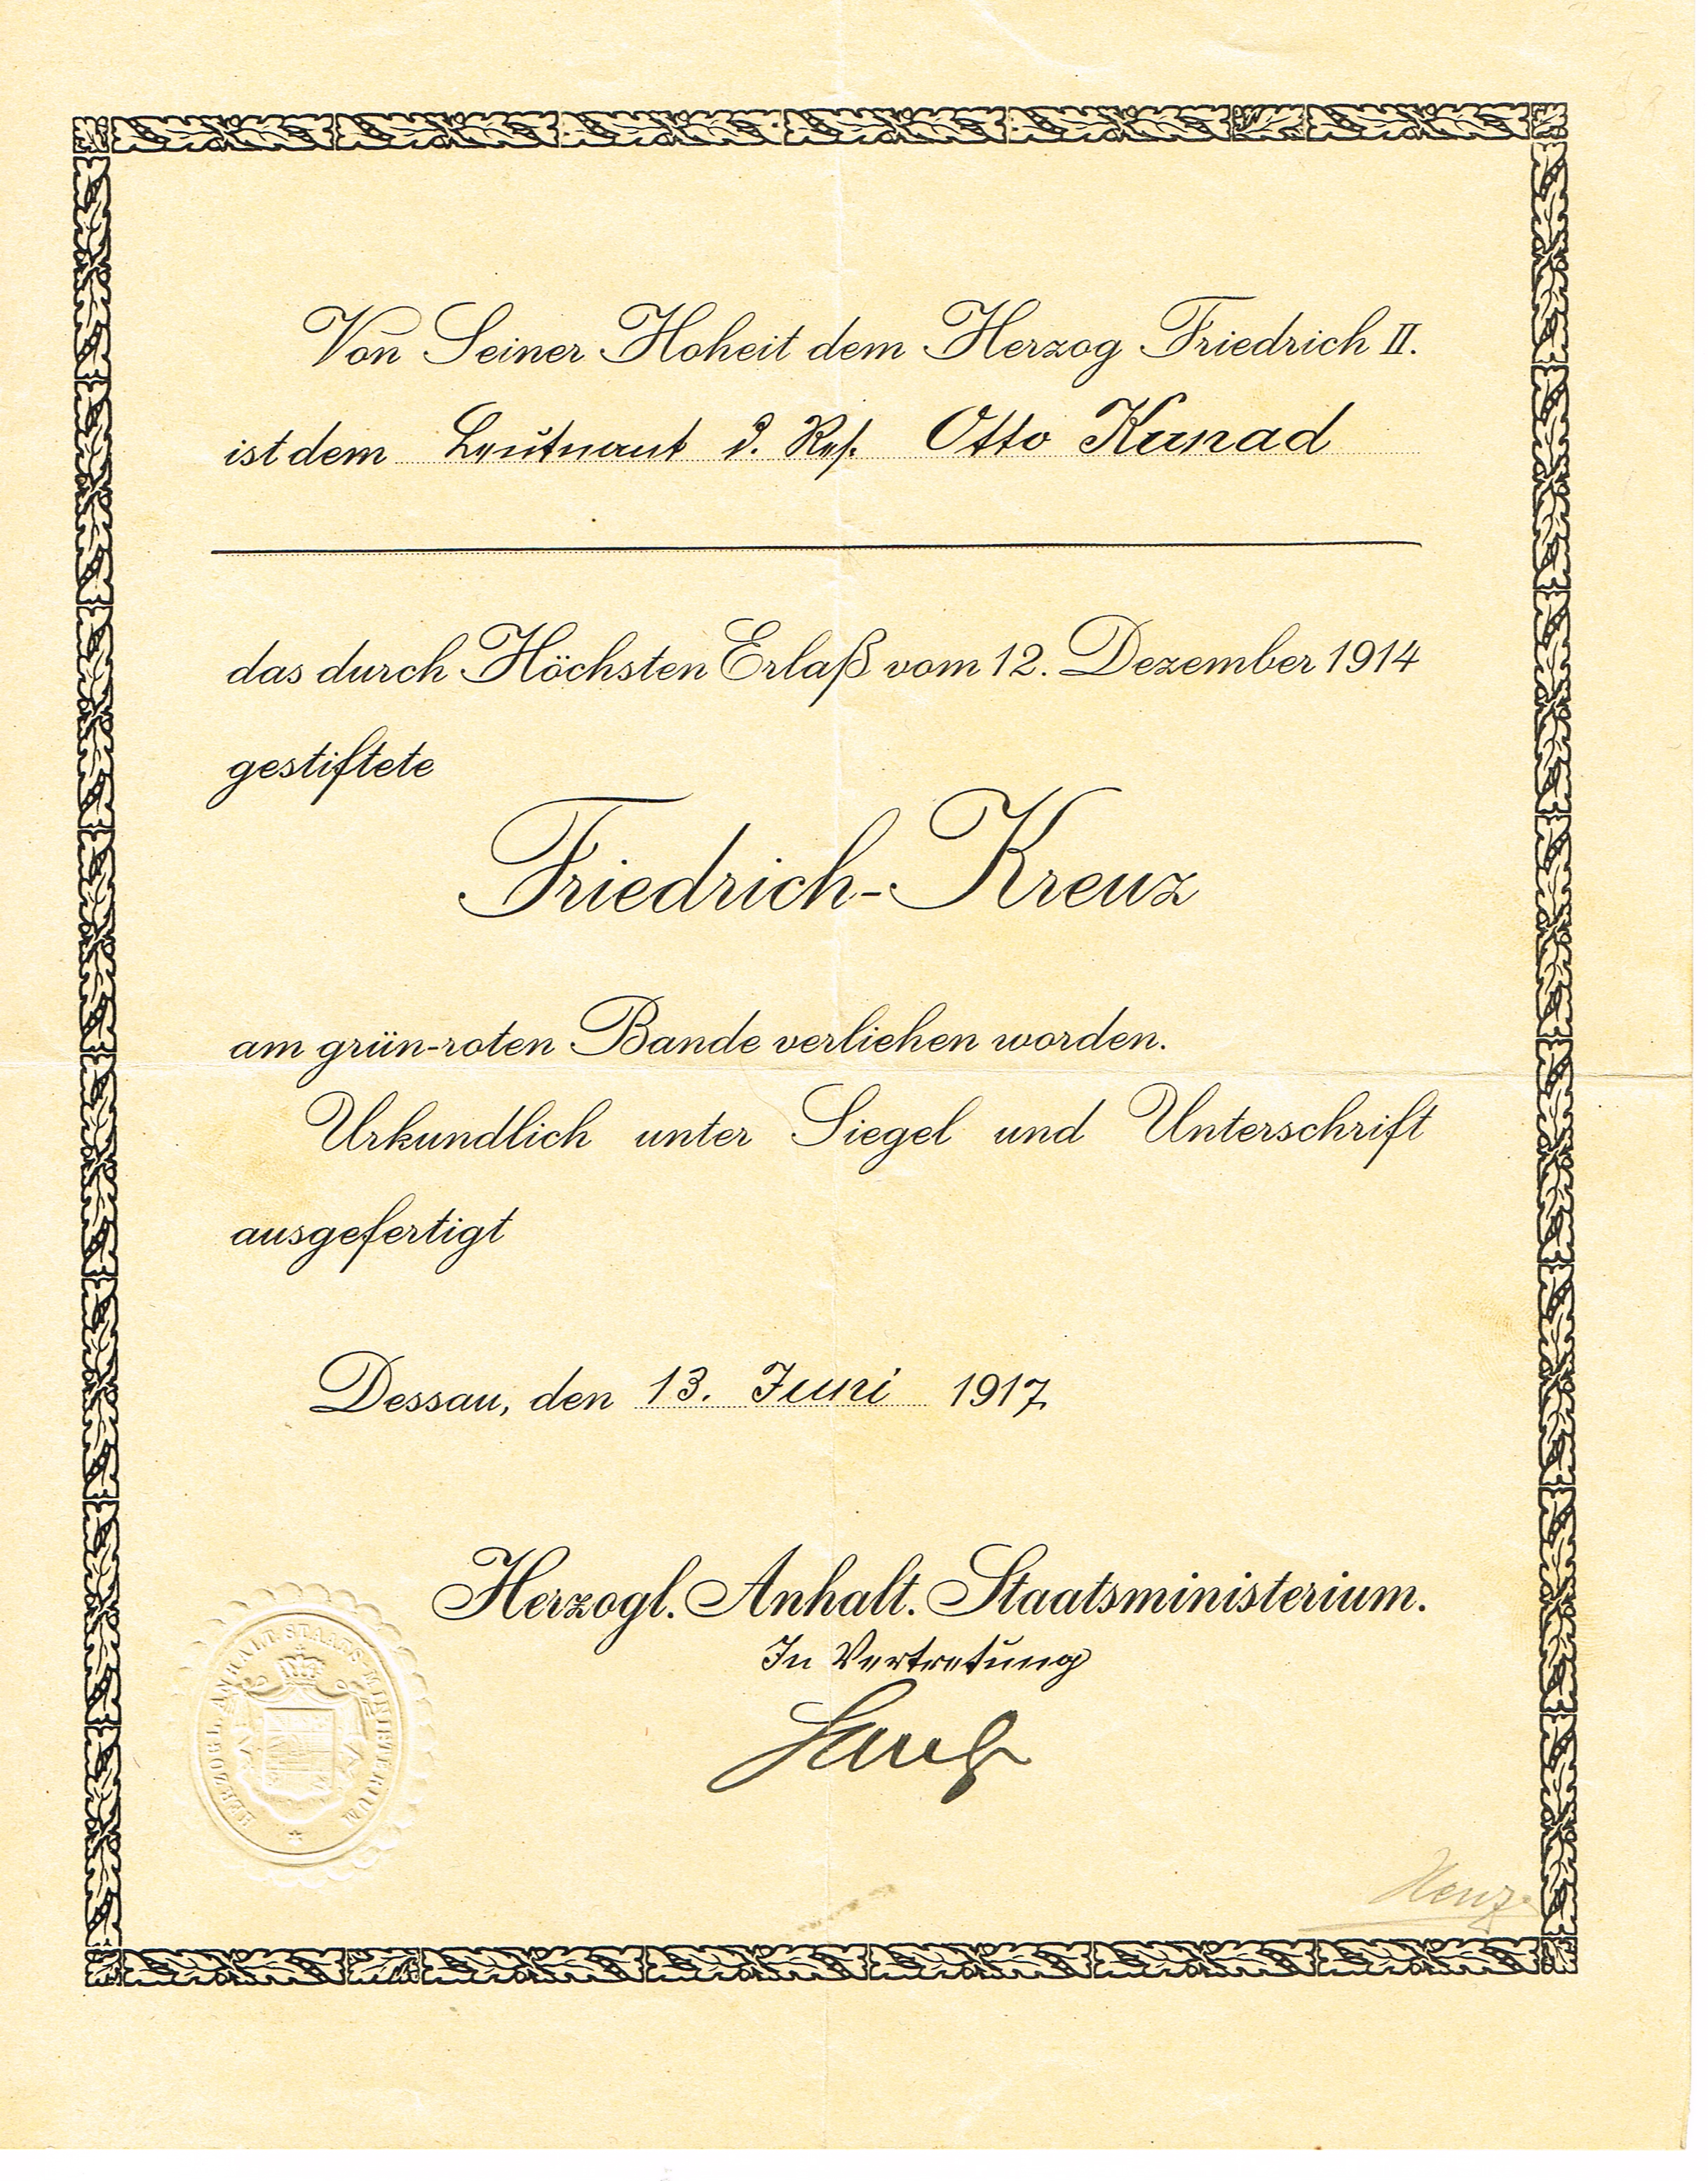 Von Seiner Hoheit dem Herzog Friedrich II.
ist dem Leutnant d. Res. Otto Kunad
das durch Höchsten Erlaß vom 12. Dezember 1914
gestiftete
Friedrich-Kreuz
am grün-roten Bande verliehen worden.
Urkundlich unter Siegel und Unterschrift
ausgefertigt
Dessau, den 13. Juni 1917.
Herzogl. Anhalt. Staatsministerium.
In Vertretung
HERZOGL. ANHALT. STAATS-MINISTERIUM